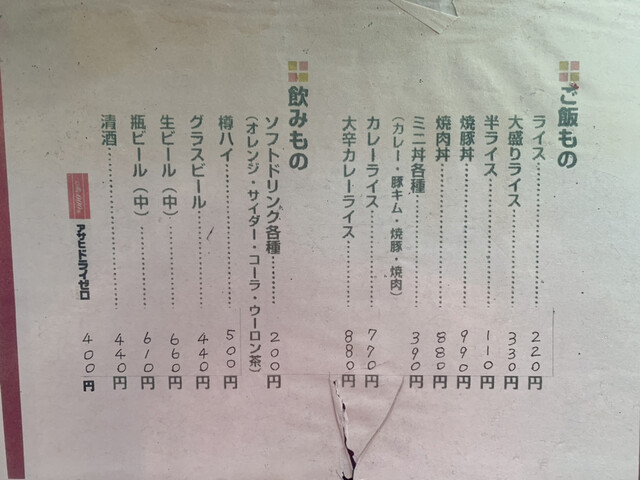 ご飯もの
ライス 220円
大盛りライス 330円
半ライス 110円
焼豚丼 990円
焼肉丼 880円
ミニ丼各種 390円
(カレー・豚キム・焼豚・焼肉)
カレーライス 770円
大辛カレーライス 880円
飲みもの
ソフトドリンク各種 200円
(オレンジ・サイダー・コーラ・ウーロン茶)
樽ハイ 500円
グラスビール 440円
生ビール(中) 660円
瓶ビール(中) 610円
清酒 440円
アサヒドライゼロ 400円